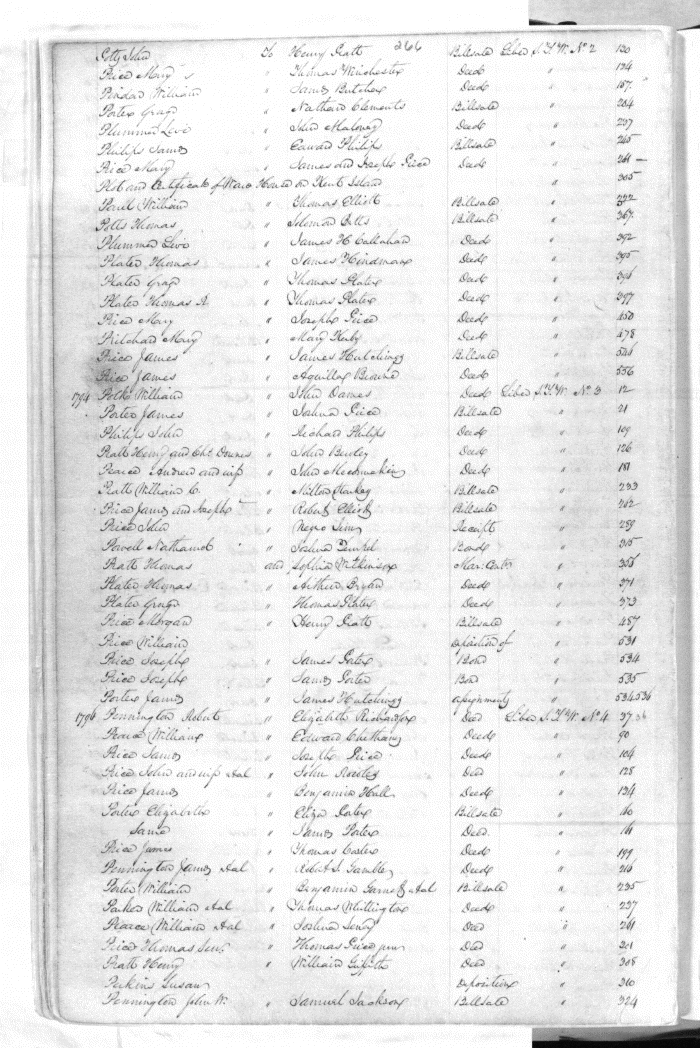 266
Potts John To Henry Pratt Billsale Liber S.T.W. No 2 130
Price Mary " Thomas Winchester Deed " 134
Pindar William " James Butcher Deed " 187
Porter Gray " Nathan Clements Billsale " 204
Plummer Levi " John Maloney Deed " 237
Philips James " Edward Philips Billsale " 245
Price Mary " James and Joseph Price Deed " 261
Plot and Certificate of Ware House on Kent Island " 305
Paul William " Thomas Elliott Billsale " 322
Potts Thomas " Solomon Betts Billsale " 367
Plummer Levi " James H Callahan Deed " 392
Plater Thomas " James Hindman Deed " 395
Plater " Thomas Plater Deed " 396
Plater Thomas A. " Thomas Plater Deed " 397
Price Mary " Joseph Price Deed " 450
Prichard Mary " Mary Kerby Deed " 478
Price James " James Hutchings Billsale "
Price James " Aquilla Browne Deed " 556
1794 Polk William " John Dames Deed Liber S.T.W. No 3 12
Porter James " Joshua Price Billsale " 21
Philips John " Richard Philips Deed " 109
Pratt Henry and Chs. Downes " John Bewley Deed " 126
Pearce Andrew and wife " John Deed " 181
Pratt William C. " Milton Billsale " 233
Price James and Joseph " Robert Elliott Billsale " 262
Price John " Negro Sims Receipt " 259
Powell Nathaniel " Joshua Bond " 315
Pratt Thomas and Sophia Wilkinson Mar: Contr " 355
Plater Thomas " Arthur Bryan Deed " 371
Plater George " Thomas Plater Deed " 373
Price Morgan " Henry Pratt Billsale " 457
Price William Deposition of " 531
Price Joseph " James Porter Bond " 534
Price Joseph " James Porter Bond " 535
Porter James " James Hutchings assignment " 534 536
1796 Pennington Robert " Elizabeth Richardson Deed Liber S.T.W. No 4 37
Pearce William " Edward Chetham Deed " 90
Price James " Joseph Price Deed " 104
Price John and wife &al " John Rowles Deed " 128
Price James " Benjamin Hall Deed " 134
Porter Elizabeth " Eliza Porter Billsale " 160
Same " James Porter Deed " 161
Price James " Thomas Carter Deed " 199
Pennington James &al " Robert S. Gamble Deed " 216
Porter William " Benjamin Garnet &al Billsale " 235
Parker William &al " Thomas Whittington Deed " 237
Pearce William &al " Joshua Deed " 241
Price Thomas Senr " Thomas Price junr Deed " 301
Pratt Henry " William Griffith Deed " 308
Perkins Susan Depositions " 310
Pennington John W. " Samuel Jackson Billsale " 324